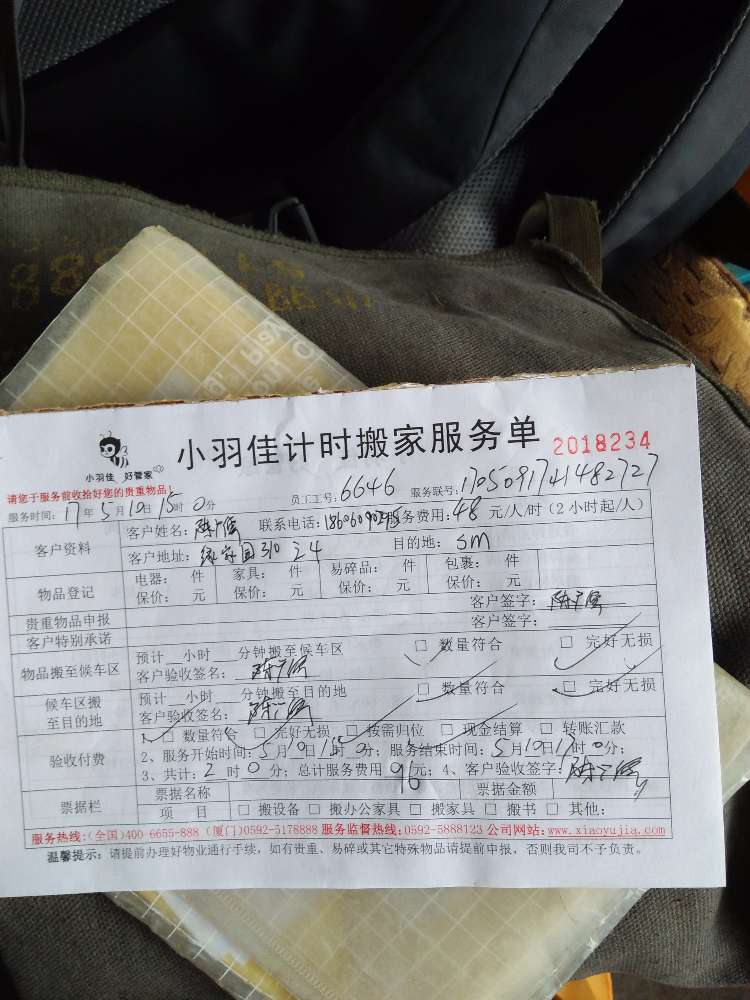 小羽佳 好管家
小羽佳计时搬家服务单 2018234
请您于服务前收拾好您的贵重物品！
服务时间：17年5月10日15时0分 员工工号：6646 服务联号：170509174148 2727
客户资料 客户姓名： 联系电话： 服务费用：48元/人/时（2小时起/人）
客户地址： 310 24 目的地：SM
物品登记 电器： 件 家具： 件 易碎品： 件 包裹： 件
保价： 元 保价： 元 保价： 元 保价： 元
贵重物品申报 客户签字：
客户特别承诺 客户签字：
物品搬至候车区 预计 小时 分钟搬至候车区 □ 数量符合 □ 完好无损
客户验收签名：
候车区搬至目的地 预计 小时 分钟搬至目的地 □ 数量符合 □ 完好无损
客户验收签名：
验收付费 1、□ 数量符合 □ 完好无损 □ 按需归位 □ 现金结算 □ 转账汇款
2、服务开始时间：5月10日15时0分；服务结束时间：5月10日17时0分；
3、共计：2时0分；总计服务费用96元；4、客户验收签字：
票据栏 票据名称 票据金额
项 目 □ 搬设备 □ 搬办公家具 □ 搬家具 □ 搬书 □ 其他：
服务热线：(全国)400-6655-888 (厦门)0592-5178888 服务监督热线：0592-5888123 公司网站：www.xiaoyujia.com
温馨提示：请提前办理好物业通行手续，如有贵重、易碎或其它特殊物品请提前申报，否则我司不予负责。